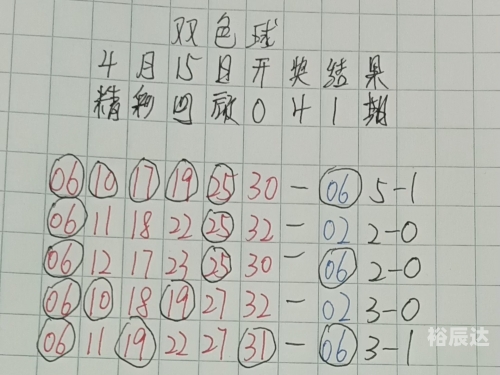 双色球
4月15日开奖结果
精彩回放041期
06 10 17 19 25 30 - 06 5-1
06 11 18 22 25 32 - 02 2-0
06 12 17 23 25 30 - 06 2-0
06 10 18 19 27 32 - 02 3-0
06 11 19 22 27 31 - 06 3-1
裕辰达